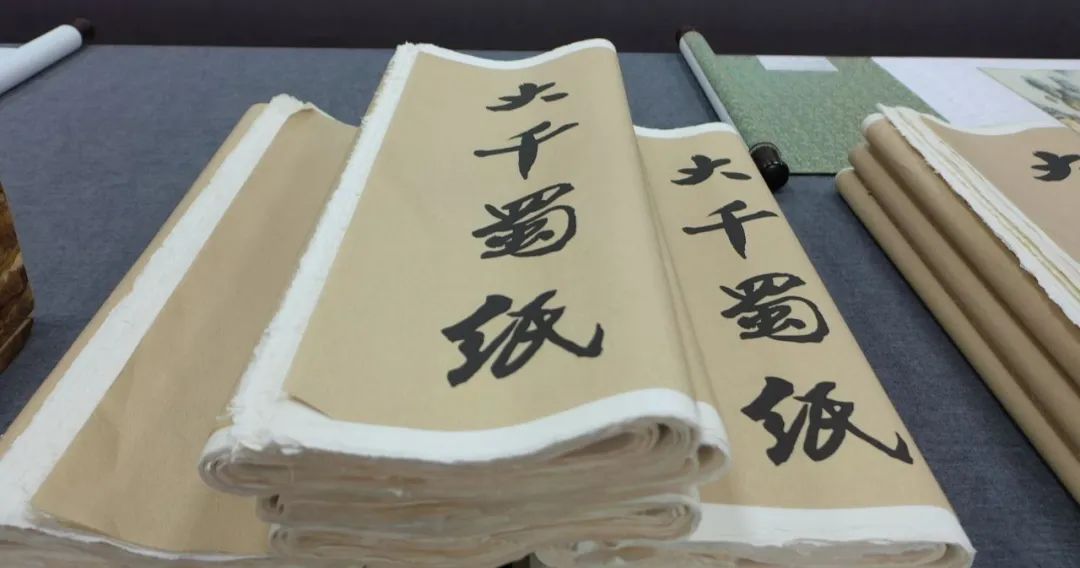 大千蜀纸
大千蜀纸
大